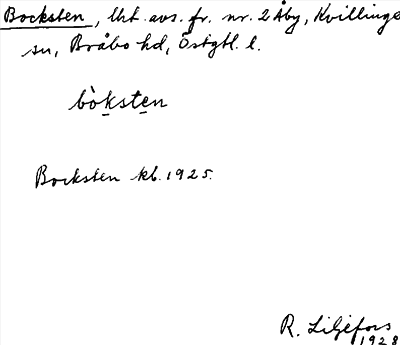 Bocksten, lht. avs. fr. nr. 2 Åby, Kvillinge
sn, Bråbo hd, Östgtl. l.
bòksten
Bocksten kb. 1925.
R. Liljefors
1928